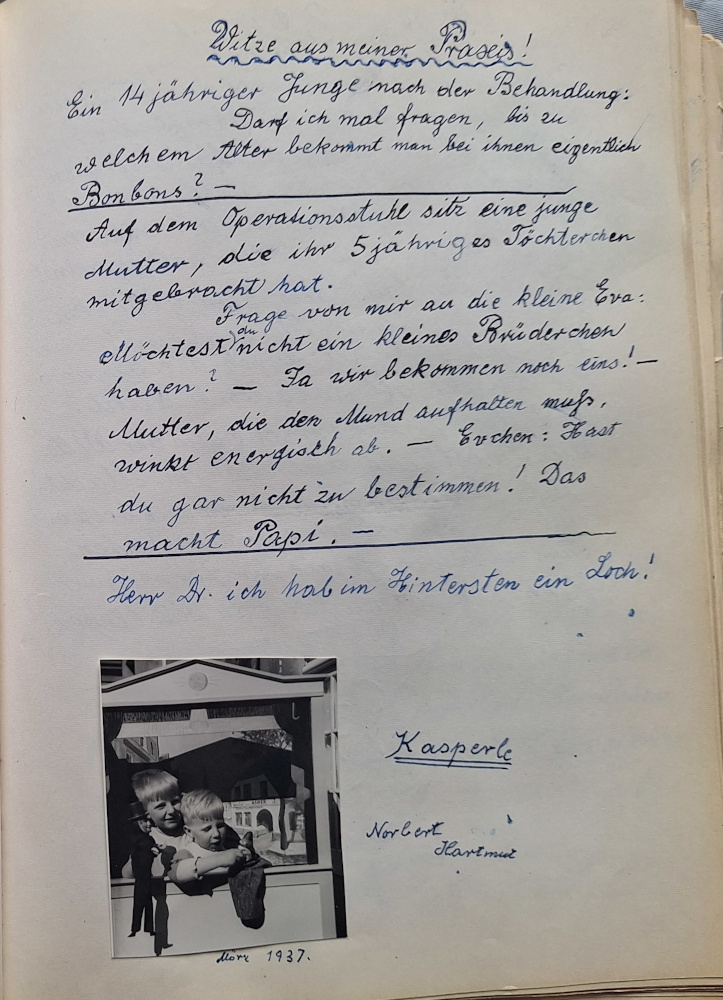 Witze aus meiner Praxis!
Ein 14 jähriger Junge nach der Behandlung:
Darf ich mal fragen, bis zu
welchem Alter bekommt man bei ihnen eigentlich
Bonbons? —
Auf dem Operationsstuhl sitz eine junge
Mutter, die ihr 5 jähriges Töchterchen
mitgebracht hat.
Frage von mir an die kleine Eva:
Möchtest du nicht ein kleines Brüderchen
haben? — Ja wir bekommen noch eins! —
Mutter, die den Mund aufhalten muß,
winkt energisch ab. — Evchen: Hast
du gar nicht zu bestimmen! Das
macht Papi. —
Herr Dr. ich hab im Hintersten ein Loch!
Kasperle
Norbert
Hartmut
März 1937.